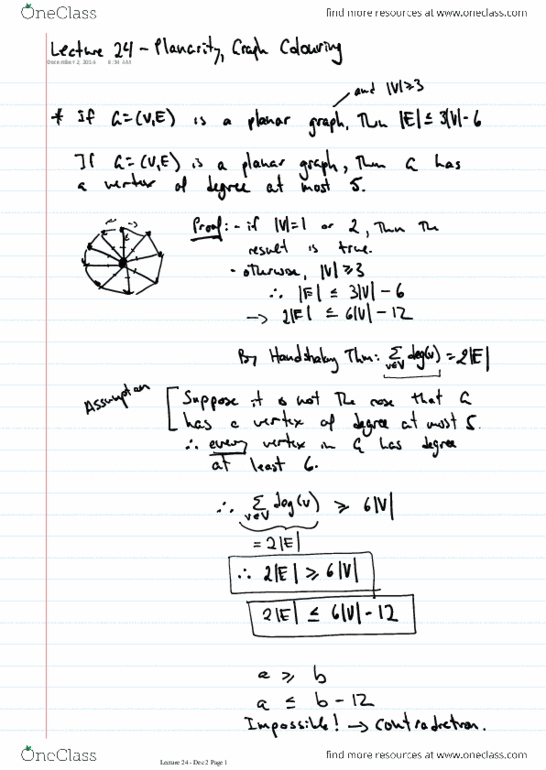 OneClass
find more resources at www.oneclass.com
Lecture 24 - Planarity, Graph Colouring
December 2, 2016
and |V|≥3
* If G=(V,E) is a planar graph, Then |E| ≤ 3|V|-6
If G=(V,E) is a planar graph, Then G has
a vertex of degree at most 5.
Proof: - if |V|=1 or 2, Then The
result is true.
- otherwise, |V|≥3
∴ |E| ≤ 3|V|-6
→ 2|E| ≤ 6|V|-12
By Handshaking Thm: Σ deg(v) = 2|E|
v∈V
Assumption
Suppose it is not The case that G
has a vertex of degree at most 5.
∴ every vertex in G has degree
at least 6.
∴ Σ deg(v) ≥ 6|V|
v∈V
= 2|E|
∴ 2|E| ≥ 6|V|
2|E| ≤ 6|V|-12
a ≥ b
a ≤ b-12
Impossible! → contradiction.
Lecture 24 - Dec 2 Page 1
OneClass
find more resources at www.oneclass.com